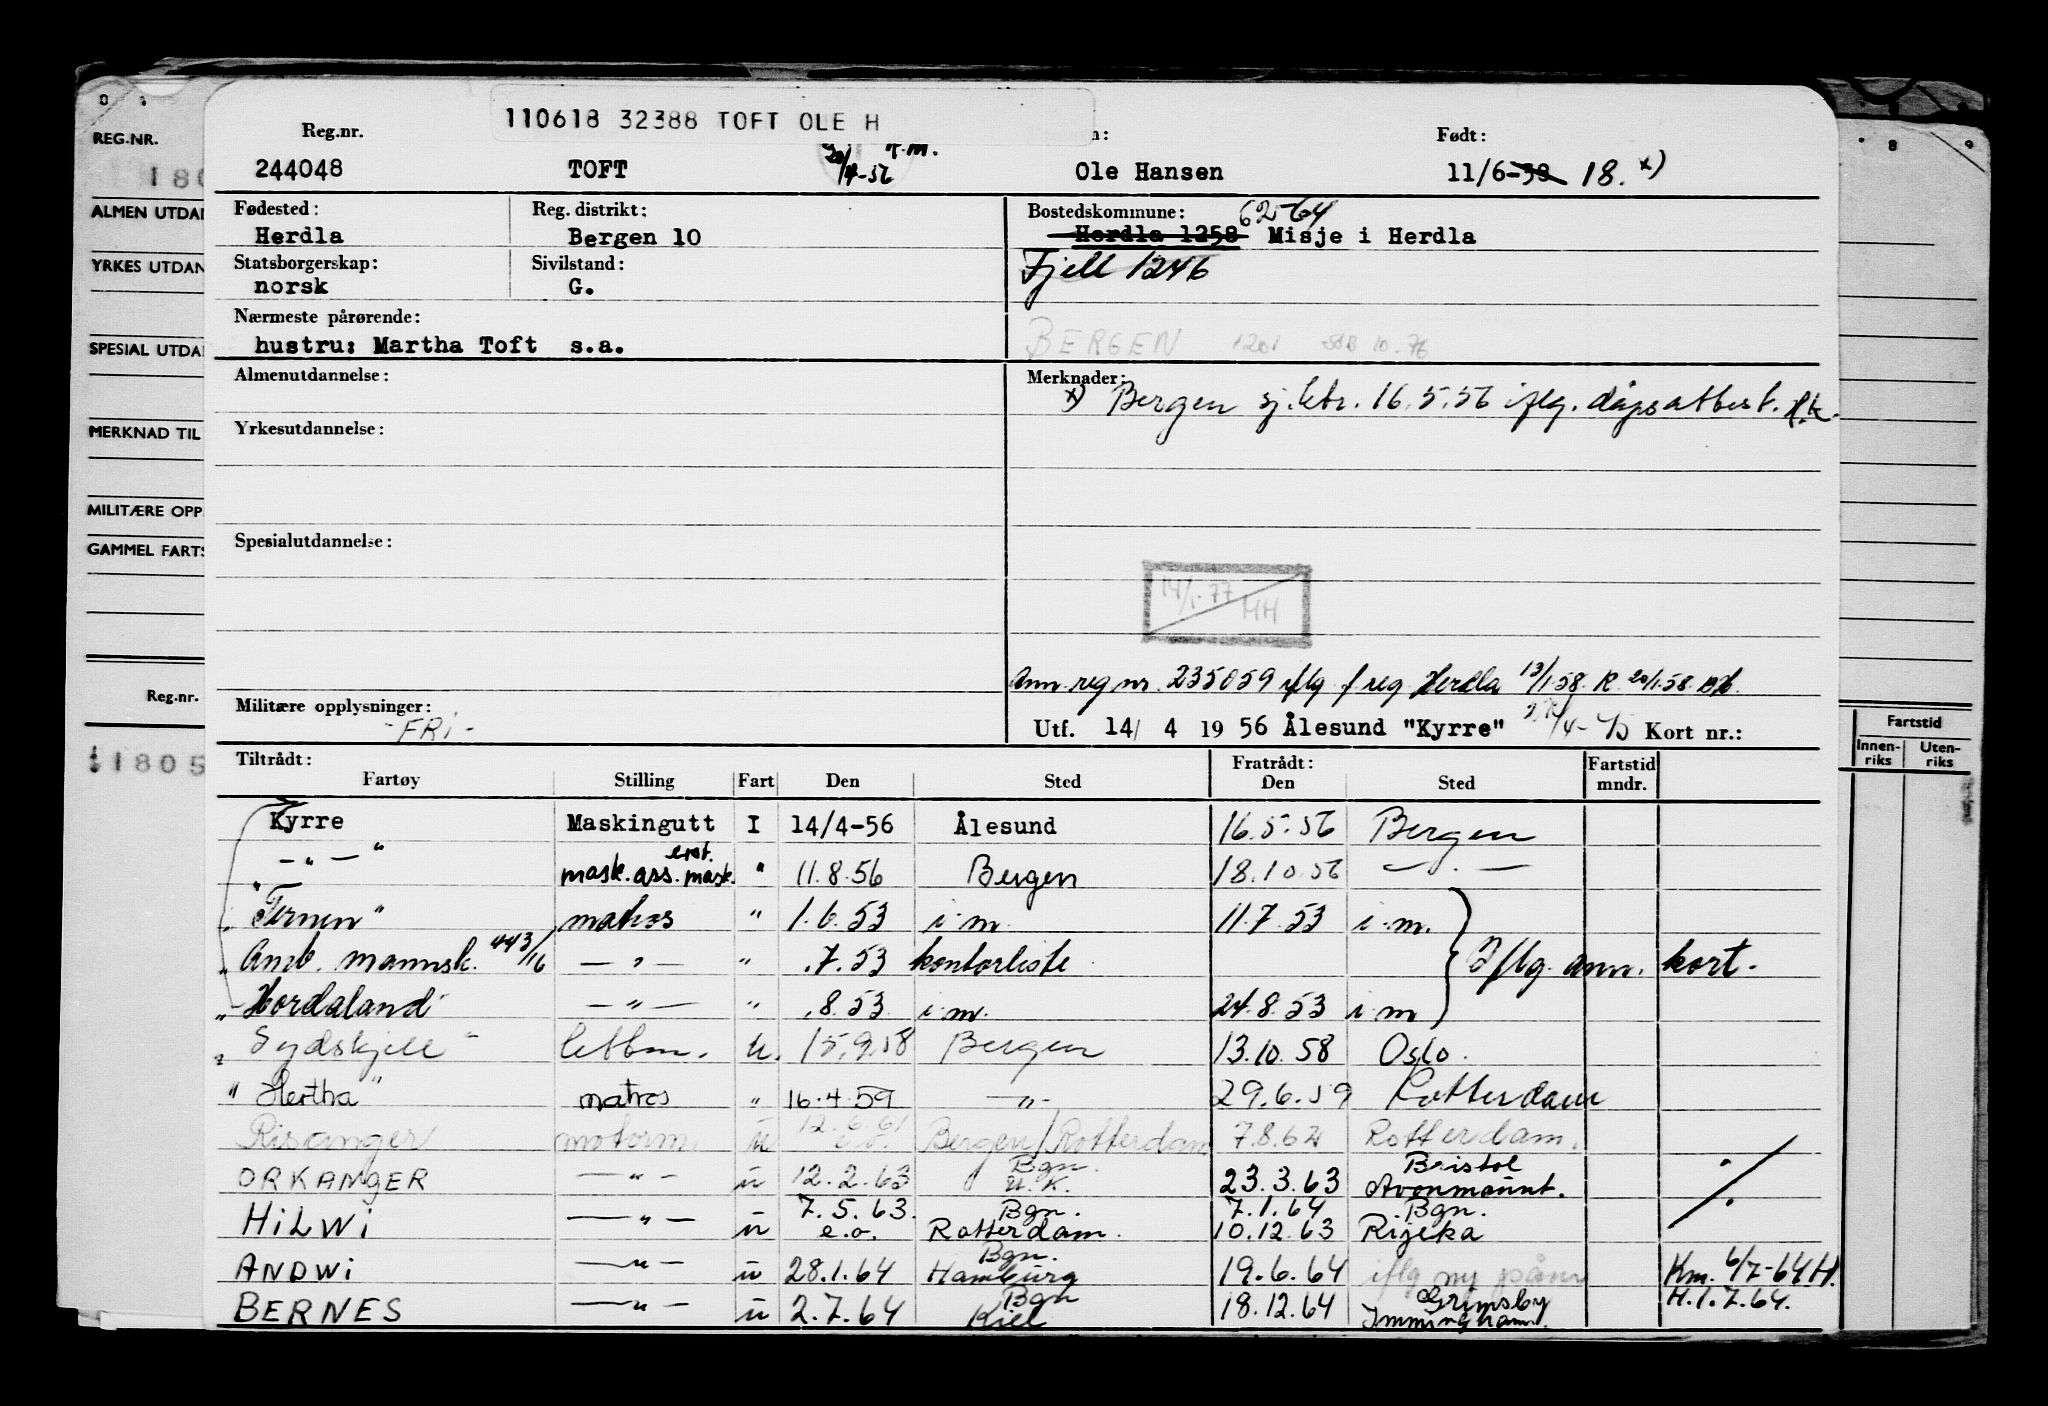 110618 32388 TOFT OLE H
Reg.nr. Født:
244048 TOFT 20/4-56 K.M. Ole Hansen 11/6-38 18. x)
Fødested: Reg. distrikt: Bostedskommune: 62-64
Herdla Bergen 10 Herdla 1258 Misje i Herdla
Statsborgerskap: Sivilstand: Fjell 1246
norsk G.
Nærmeste pårørende: BERGEN 1201 10.76
hustru: Martha Toft s.a.
Almenutdannelse: Merknader:
x) Bergen sj.ktr. 16.5.56 iflg. dåpsattest.
Yrkesutdannelse:
Spesialutdannelse:
14/1-77 HH
Ann. reg nr. 235059 iflg f reg Herdla 13/1.58. K. 20/1.58.
Militære opplysninger: -FRi-
Utf. 14/ 4 19 56 Ålesund "Kyrre" Kort nr.:
Tiltrådt: Fratrådt: Fartstid
Fartøy Stilling Fart Den Sted Den Sted mndr.
Kyrre Maskingutt I 14/4-56 Ålesund 16.5.56 Bergen
— " — " mask.ass. erst. mask. " 11.8.56 Bergen 18.10.56 — . —
"Ternen" matros " 1.6.53 i.m. 11.7.53 i.m.
" Amb. mannsk. 443/16 — " — " .7.53 kontorliste Iflg. ann. kort.
"Hordaland" — " — " .8.53 i.m. 24.8.53 i m
" Sydskjell " lettm. u. 15.9.58 Bergen 13.10.58 Oslo.
" Hertha " matros " 16.4.59 — " — 29.6.59 Rotterdam
Risanger motorm. u 12.6.61 e.o. Bergen/Rotterdam 7.8.62 Rotterdam.
ORKANGER — " — u 12.2.63 Bgn. U.K. 23.3.63 Bristol Avonmount.
HiLWi — " — u 7.5.63. e.o. Bgn. Rotterdam. 7.1.64 10.12.63 Bgn. Rijeka
ANDWi — " — u 28.1.64 Bgn. Hamburg 19.6.64 iflg ny påm Km. 6/7-64 H.
BERNES — " — u 2.7.64 Bgn Kiel 18.12.64 Grimsby Immingham. H.1.7.64.
REG.NR.
180
ALMEN UTDAN
YRKES UTDAN
SPESIAL UTDA
MERKNAD TIL
MILITÆRE OPP
GAMMEL FARTS
Reg.nr.
11805
Fartstid
Innen-riks Uten-riks